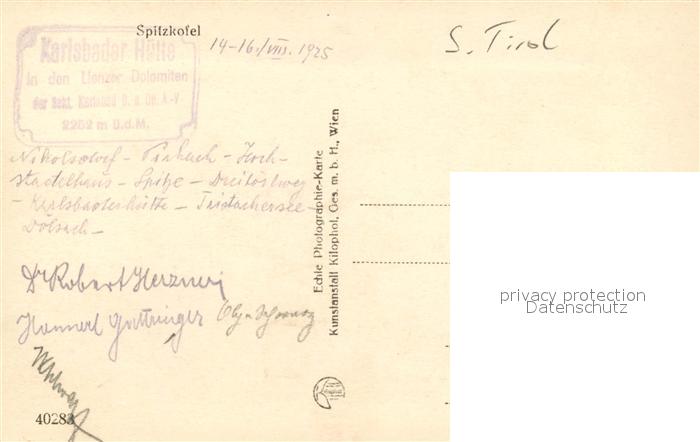 Spitzkofel
14-16./VIII. 1925
S. Tirol
Karlsbader Hütte
in den Lienzer Dolomiten
der Sekt. Karlsbad D. u. Ö. A.-V
2252 m ü.d.M.
Nikolsdorf - Pirkach - Hoch-
stadelhaus - Spitze - Dreitörlweg
- Karlsbaderhütte - Tristachersee -
Dölsach -
Dr Robert
Hannerl Gattringer
Olga Schwarz
Echte Photographie-Karte
Kunstanstalt Kilophot, Ges. m. b. H., Wien
40283
privacy protection
Datenschutz